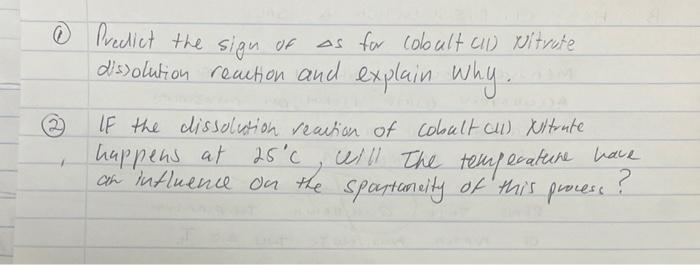 ① Predict the sign of ΔS for Cobalt (II) Nitrate
dissolution reaction and explain why.
② IF the dissolution reaction of Cobalt (II) Nitrate
happens at 25°C, will The temperature have
an influence on the spontaneity of this process?